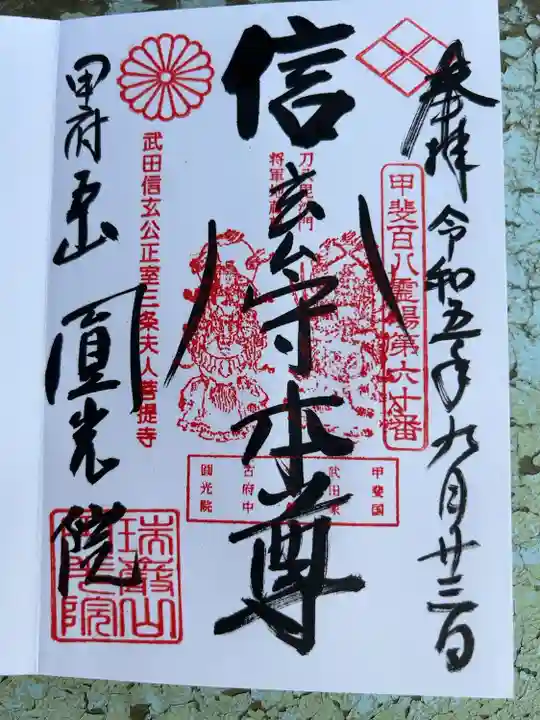 奉拝 令和五年九月廿三日
甲斐百八霊場第六十番
信玄公守本尊
刀八毘沙門
将軍地蔵
甲斐国
武田家
古府中
圓光院
武田信玄公正室三条夫人菩提寺
甲府五山 圓光院
瑞巖山
圓光院